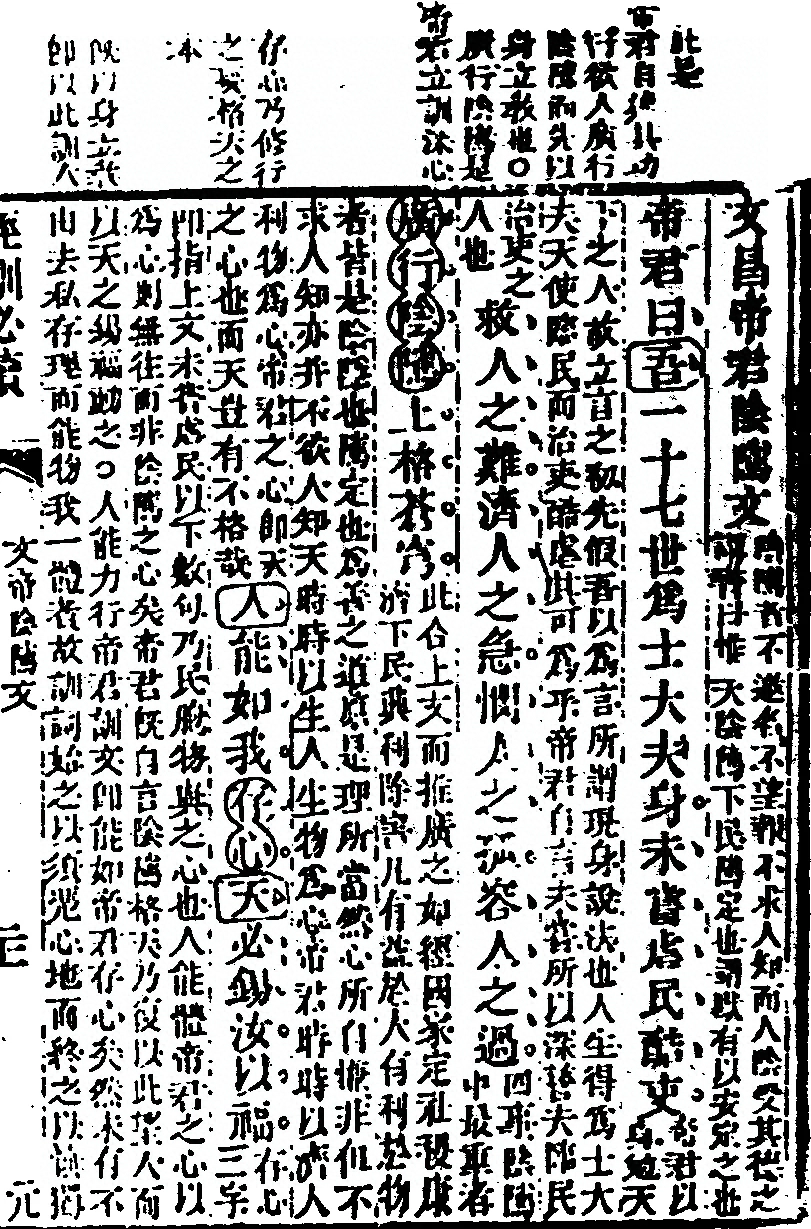 此是
帝君自積其功
行欲人廣行
陰隲而先以
身立教也〇
廣行陰隲是
帝君立訓沐心
存心乃修行
之之格天之
本
既以身立教
即以此訓人
文昌帝君陰隲文
陰隲者不邀名不望報不求人知而人陰受其德之
謂書曰惟天陰隲下民隲定也謂默有以安定之也
帝君曰吾一十七世爲士大夫身未嘗虐民酷吏
帝君以身勉天
下之人故立言之初先假吾以爲言所謂現身說法也人生得爲士大
夫天使臨民而治吏酷虐其可爲乎帝君自言未嘗所以深警夫臨民
治吏之
人也
救人之難濟人之急憫人之孤容人之過
四事陰隲
中最重者
廣行陰隲上格蒼穹
此合上文而推廣之如經國家定社稷康
濟下民興利除害凡有益於人有利於物
者皆是陰陰也隲定也爲善之道原是理所當然心所自慊非但不
求人知亦并不欲人知天時時以生人生物爲心帝君時時以濟人
利物爲心帝君之心即天
之心也而天豈有不格哉
人能如我存心天必錫汝以福
三字
存心
即指上文未嘗虐民以下數句乃民胞物與之心也人能體帝君之心以
爲心則無往而非陰隲之心矣帝君既自言陰隲格天乃復以此望人而
以天之錫福勸之〇人能力行帝君訓文即能如帝君存心矣然未有不
由去私存理而能物我一體者故訓詞始之以須光心地而終之以慎獨
座訓必讀
文帝陰隲文
三
元